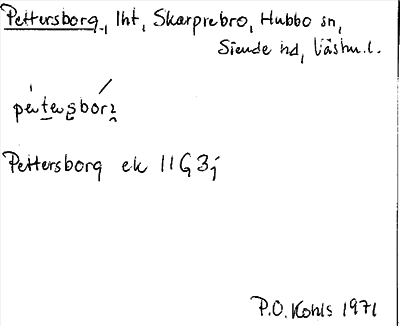 Pettersborg, lht, Skarprebro, Hubbo sn,
Siende hd, Västm.l.
Pettersborg ek 11G3j
P.O. Kohls 1971